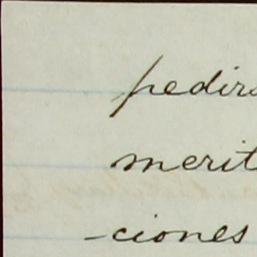 pedirs
merit
-ciones